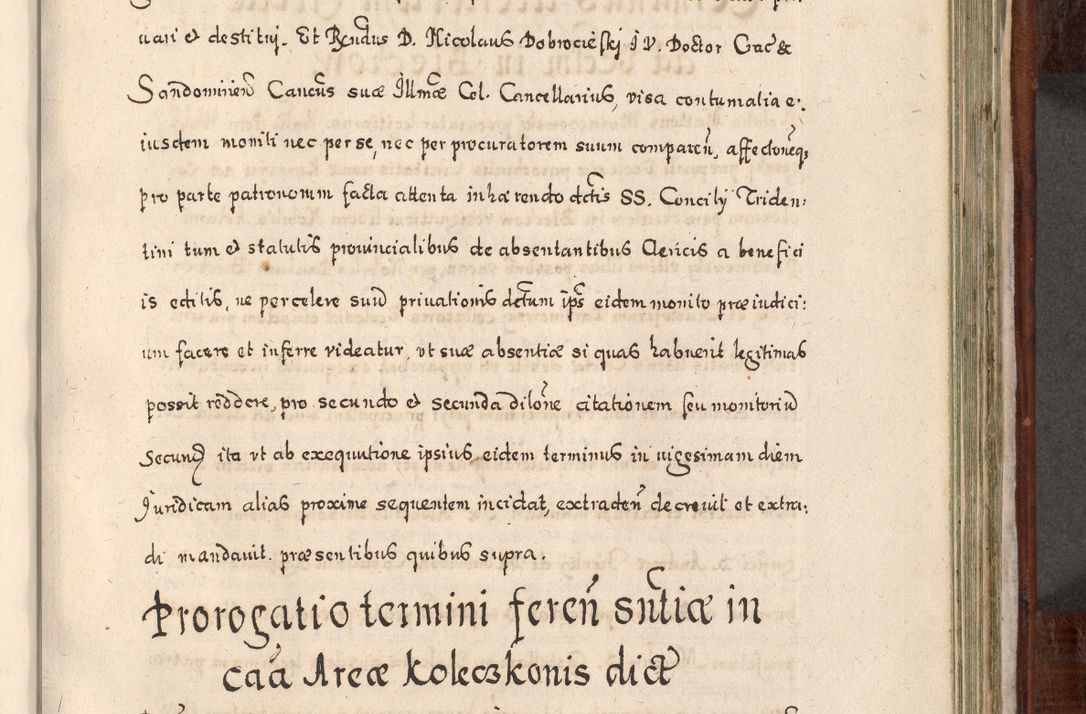 uari et destitui. Et Rendus D. Nicolaus Dobrocieski I V. Doctor Crac &
Sandomirien Cancus suae Illmae Cel. Cancellarius, visa contumatia e:
iusdem moniti nec per se, nec per procuratorem suum comparen, affectioneq
pro parte patronorum facta attenta inhaerendo dctis SS. Concilij Triden:
tini tum et statutis prouincialibus de absentantibus Clericis a benefici
is editis, ne percelere suū priuationis dctum ips eidem monito praeiudici:
um facere et inferre videatur, vt suae absentiae si quas habuerit legitimas
possit reddere, pro secundo et secunda dilone citationem seu monitoriū
Secund ita vt ab exequutione ipsius eidem terminus in vigesimam diem
Juridicam alias proxime sequentem incidat, extraden decreuit et extra:
di mandauit. praesentibus quibus supra.
Prorogatio termini feren sntiae in
caa Areae Koleczkonis dict